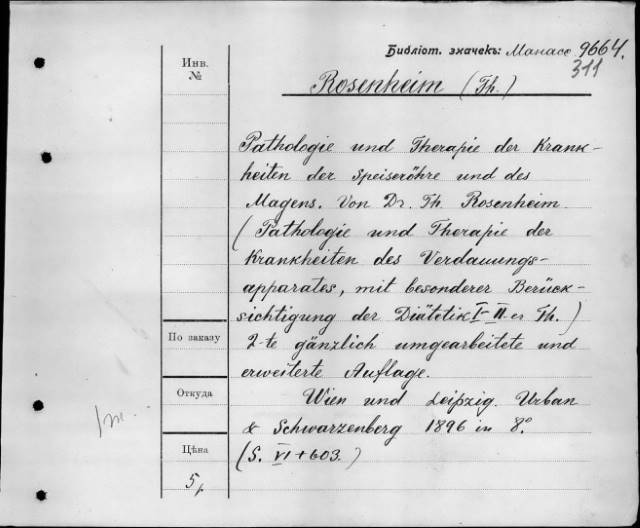 Библіот. значекъ: Манасс 9664.
311
Инв.
№
Rosenheim (Th.)
Pathologie und Therapie der Krank-
heiten der Speiseröhre und des
Magens. Von Dr. Th. Rosenheim.
(Pathologie und Therapie der
Krankheiten des Verdauungs-
apparates, mit besonderer Berück-
sichtigung der Diätetik I-II-er Th.)
По заказу
2-te gänzlich umgearbeitete und
erweiterte Auflage.
Откуда
Wien und Leipzig. Urban
& Schwarzenberg 1896 in 8°
Цѣна
(S. VI + 603.)
5 р